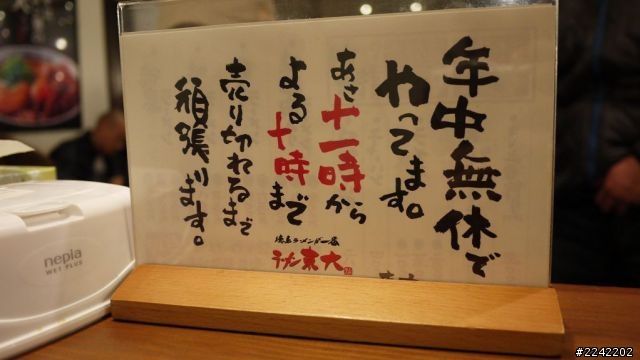 年中無休で
やってます。
あさ十一時から
よる十時まで
売り切れるまで
頑張ります。
徳島ラーメン
ラーメン東大
nepia
WET PLUS
#2242202